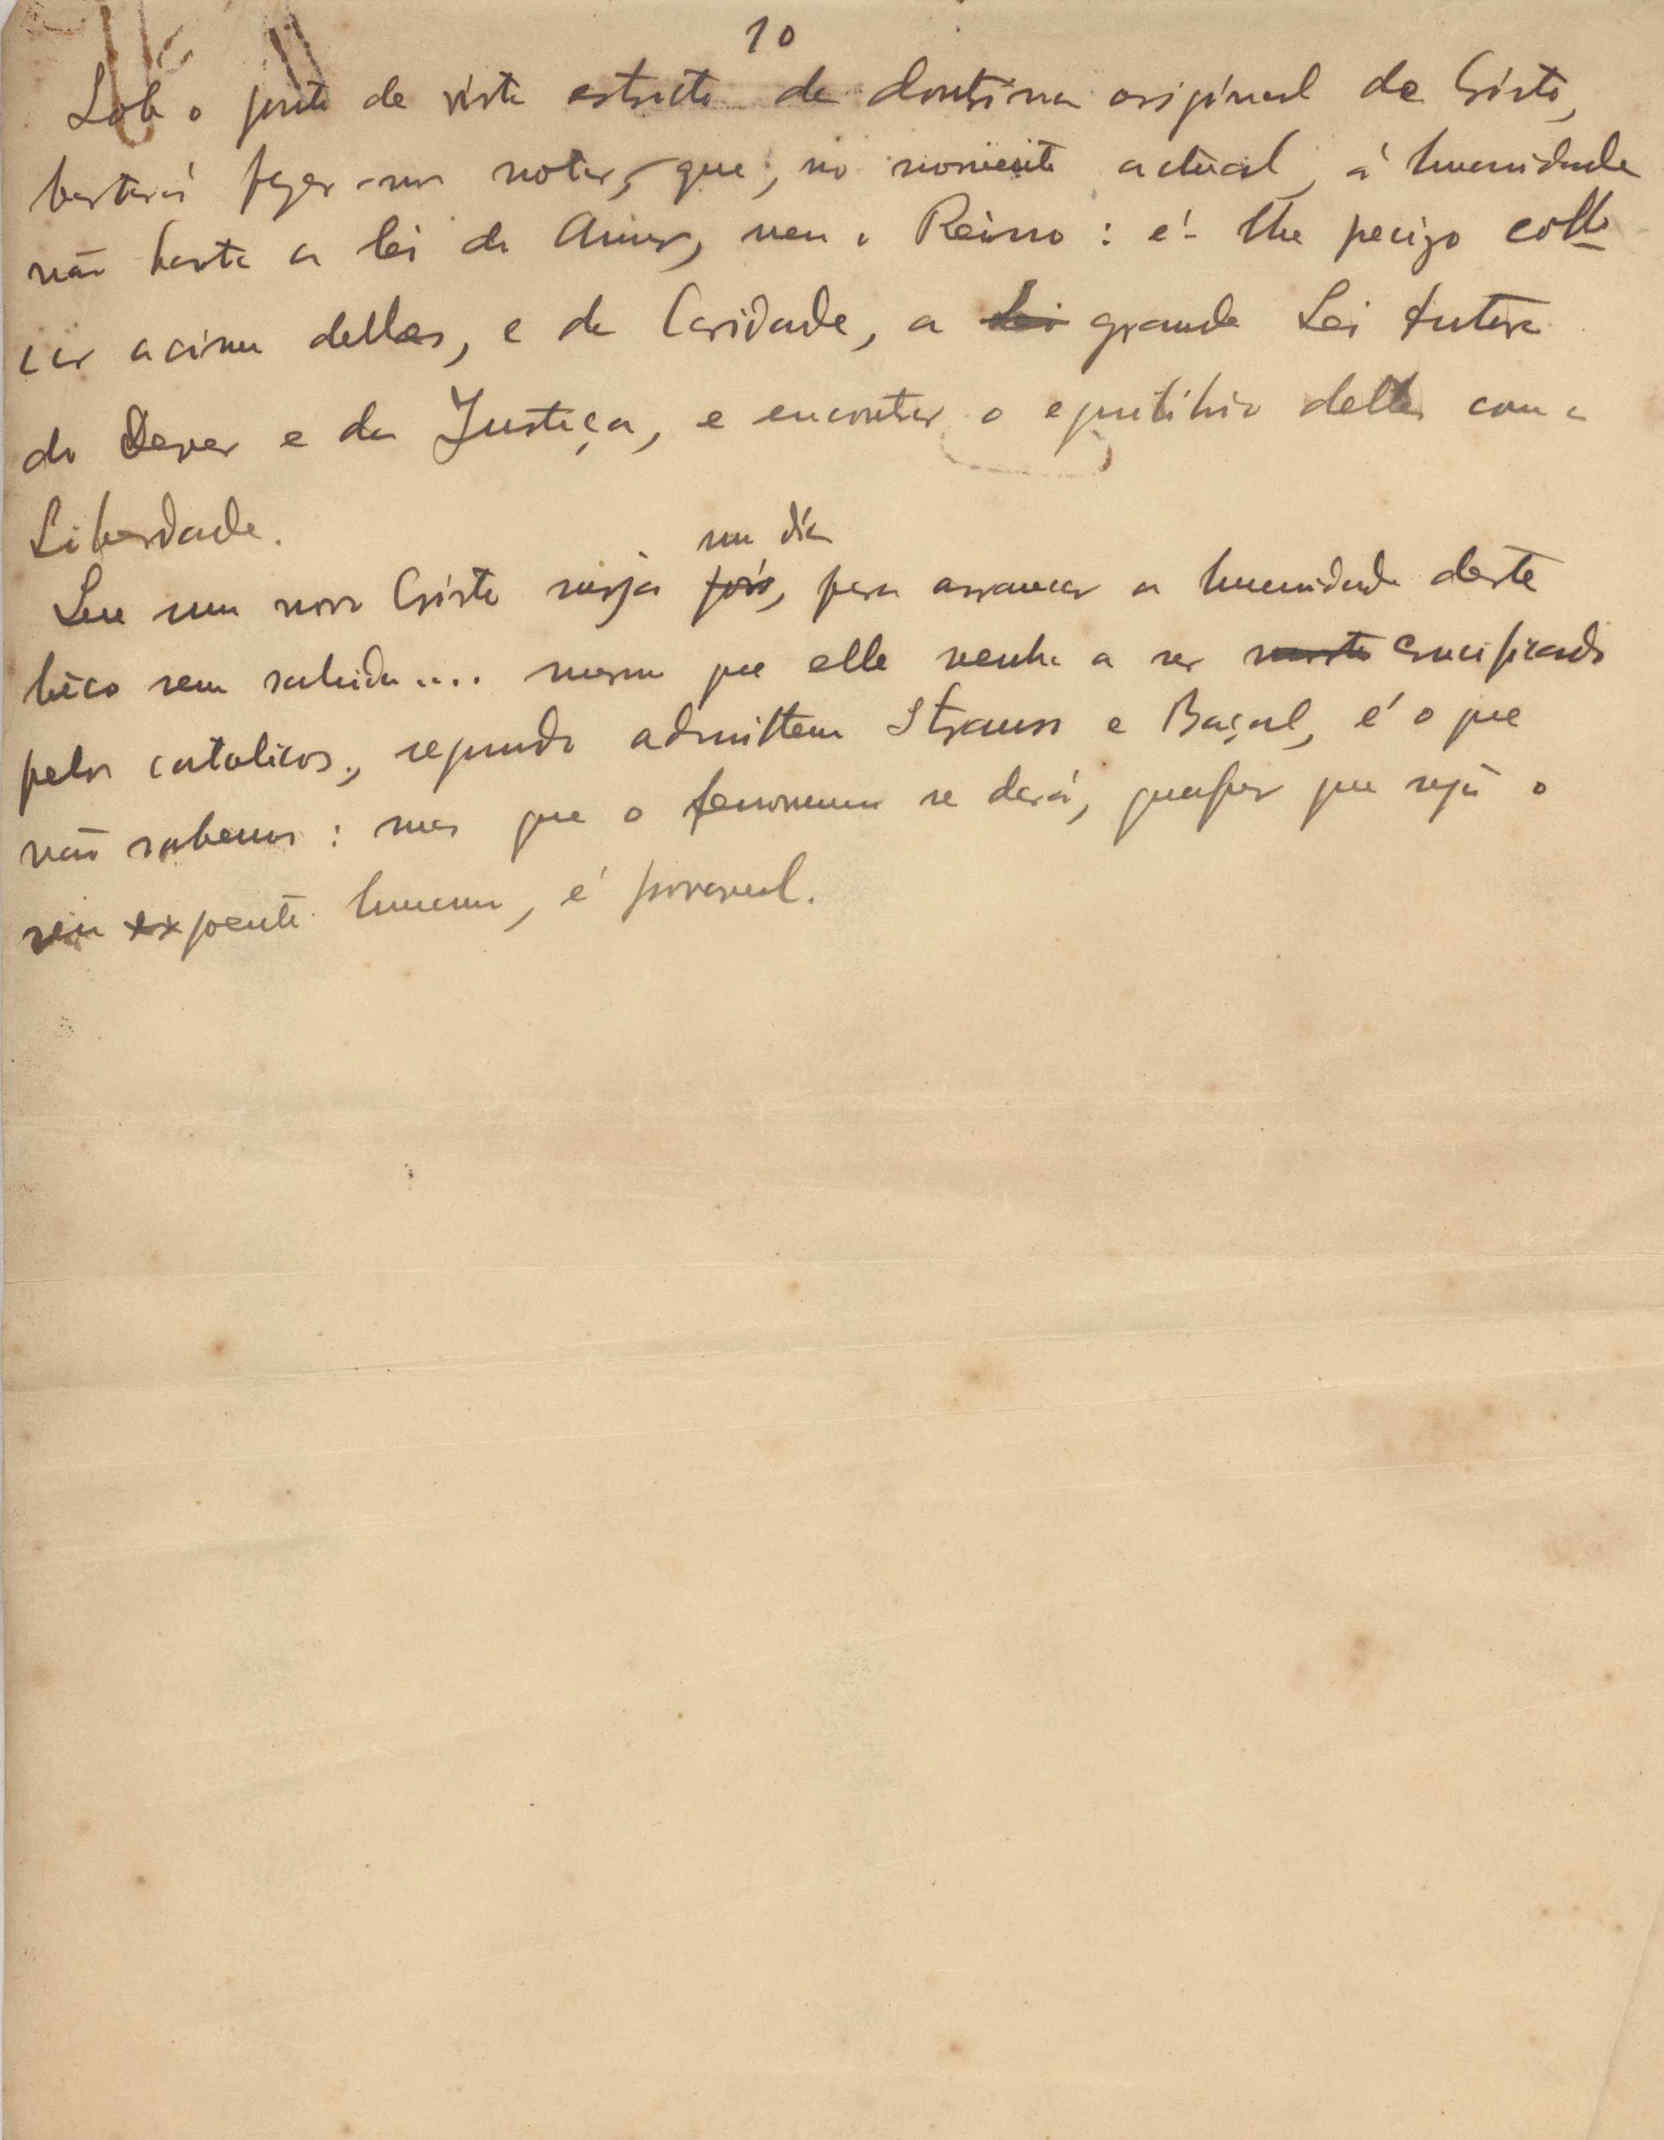 10
Sob o ponto de vista estricto da doutrina original de Cristo,
bastará fazer-nos notar, que, no momento actual, á humanidade
não basta a lei do Amor, nem o Reino : é-lhe preciso collo
car acima dellas, e da Caridade, a Lei grande Lei
do Dever e da Justiça, e encontrar o equilibrio dellas com a
Liberdade.
um dia
Que um novo Cristo surja pois, para arrancar a humanidade deste
bêco sem sahida.... mesmo que elle venha a ser morto crucificado
pelos catolicos, segundo admittem Strauss e , é o que
não sabemos : mas que o fenomeno se dará, qualquer que seja o
seu expoente humano, é provavel.